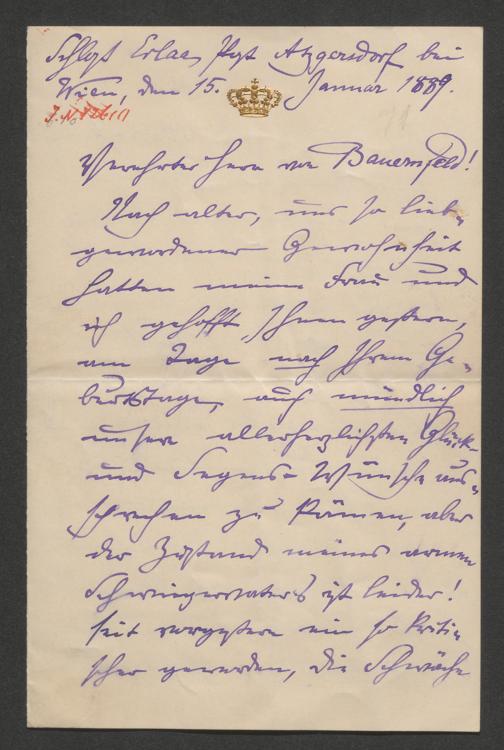 Schloß Erlaa, Post Atzgersdorf bei
Wien, den 15. Januar 1889.
Verehrter Herr von Bauernfeld!
Nach alter, uns so lieb
gewordener Gewohnheit
hatten meine Frau und
ich gehofft, Ihnen gestern,
am Tage nach Ihrem Ge-
burtstage, auch mündlich
unsere allerherzlichsten Glück-
und Segens-Wünsche aus-
sprechen zu können, aber
der Zustand meines armen
Schwiegervaters ist leider!
seit vorgestern ein so kriti-
scher geworden, die Schwäche